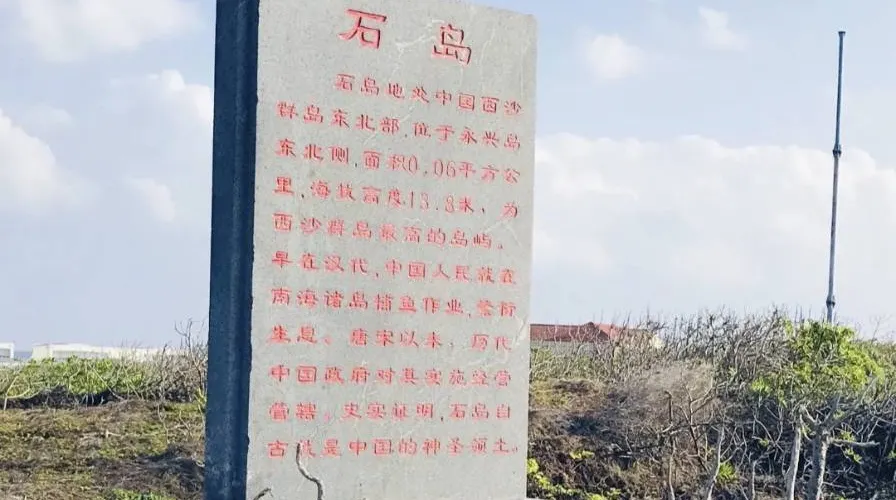 石岛
石岛地处中国西沙
群岛东北部,位于永兴岛
东北侧,面积0.06平方公
里,海拔高度13.8米,为
西沙群岛最高的岛屿。
早在汉代,中国人民就在
南海诸岛捕鱼作业,繁衍
生息。唐宋以来,历代
中国政府对其实施经营
管辖。史实证明,石岛自
古代是中国的神圣领土。